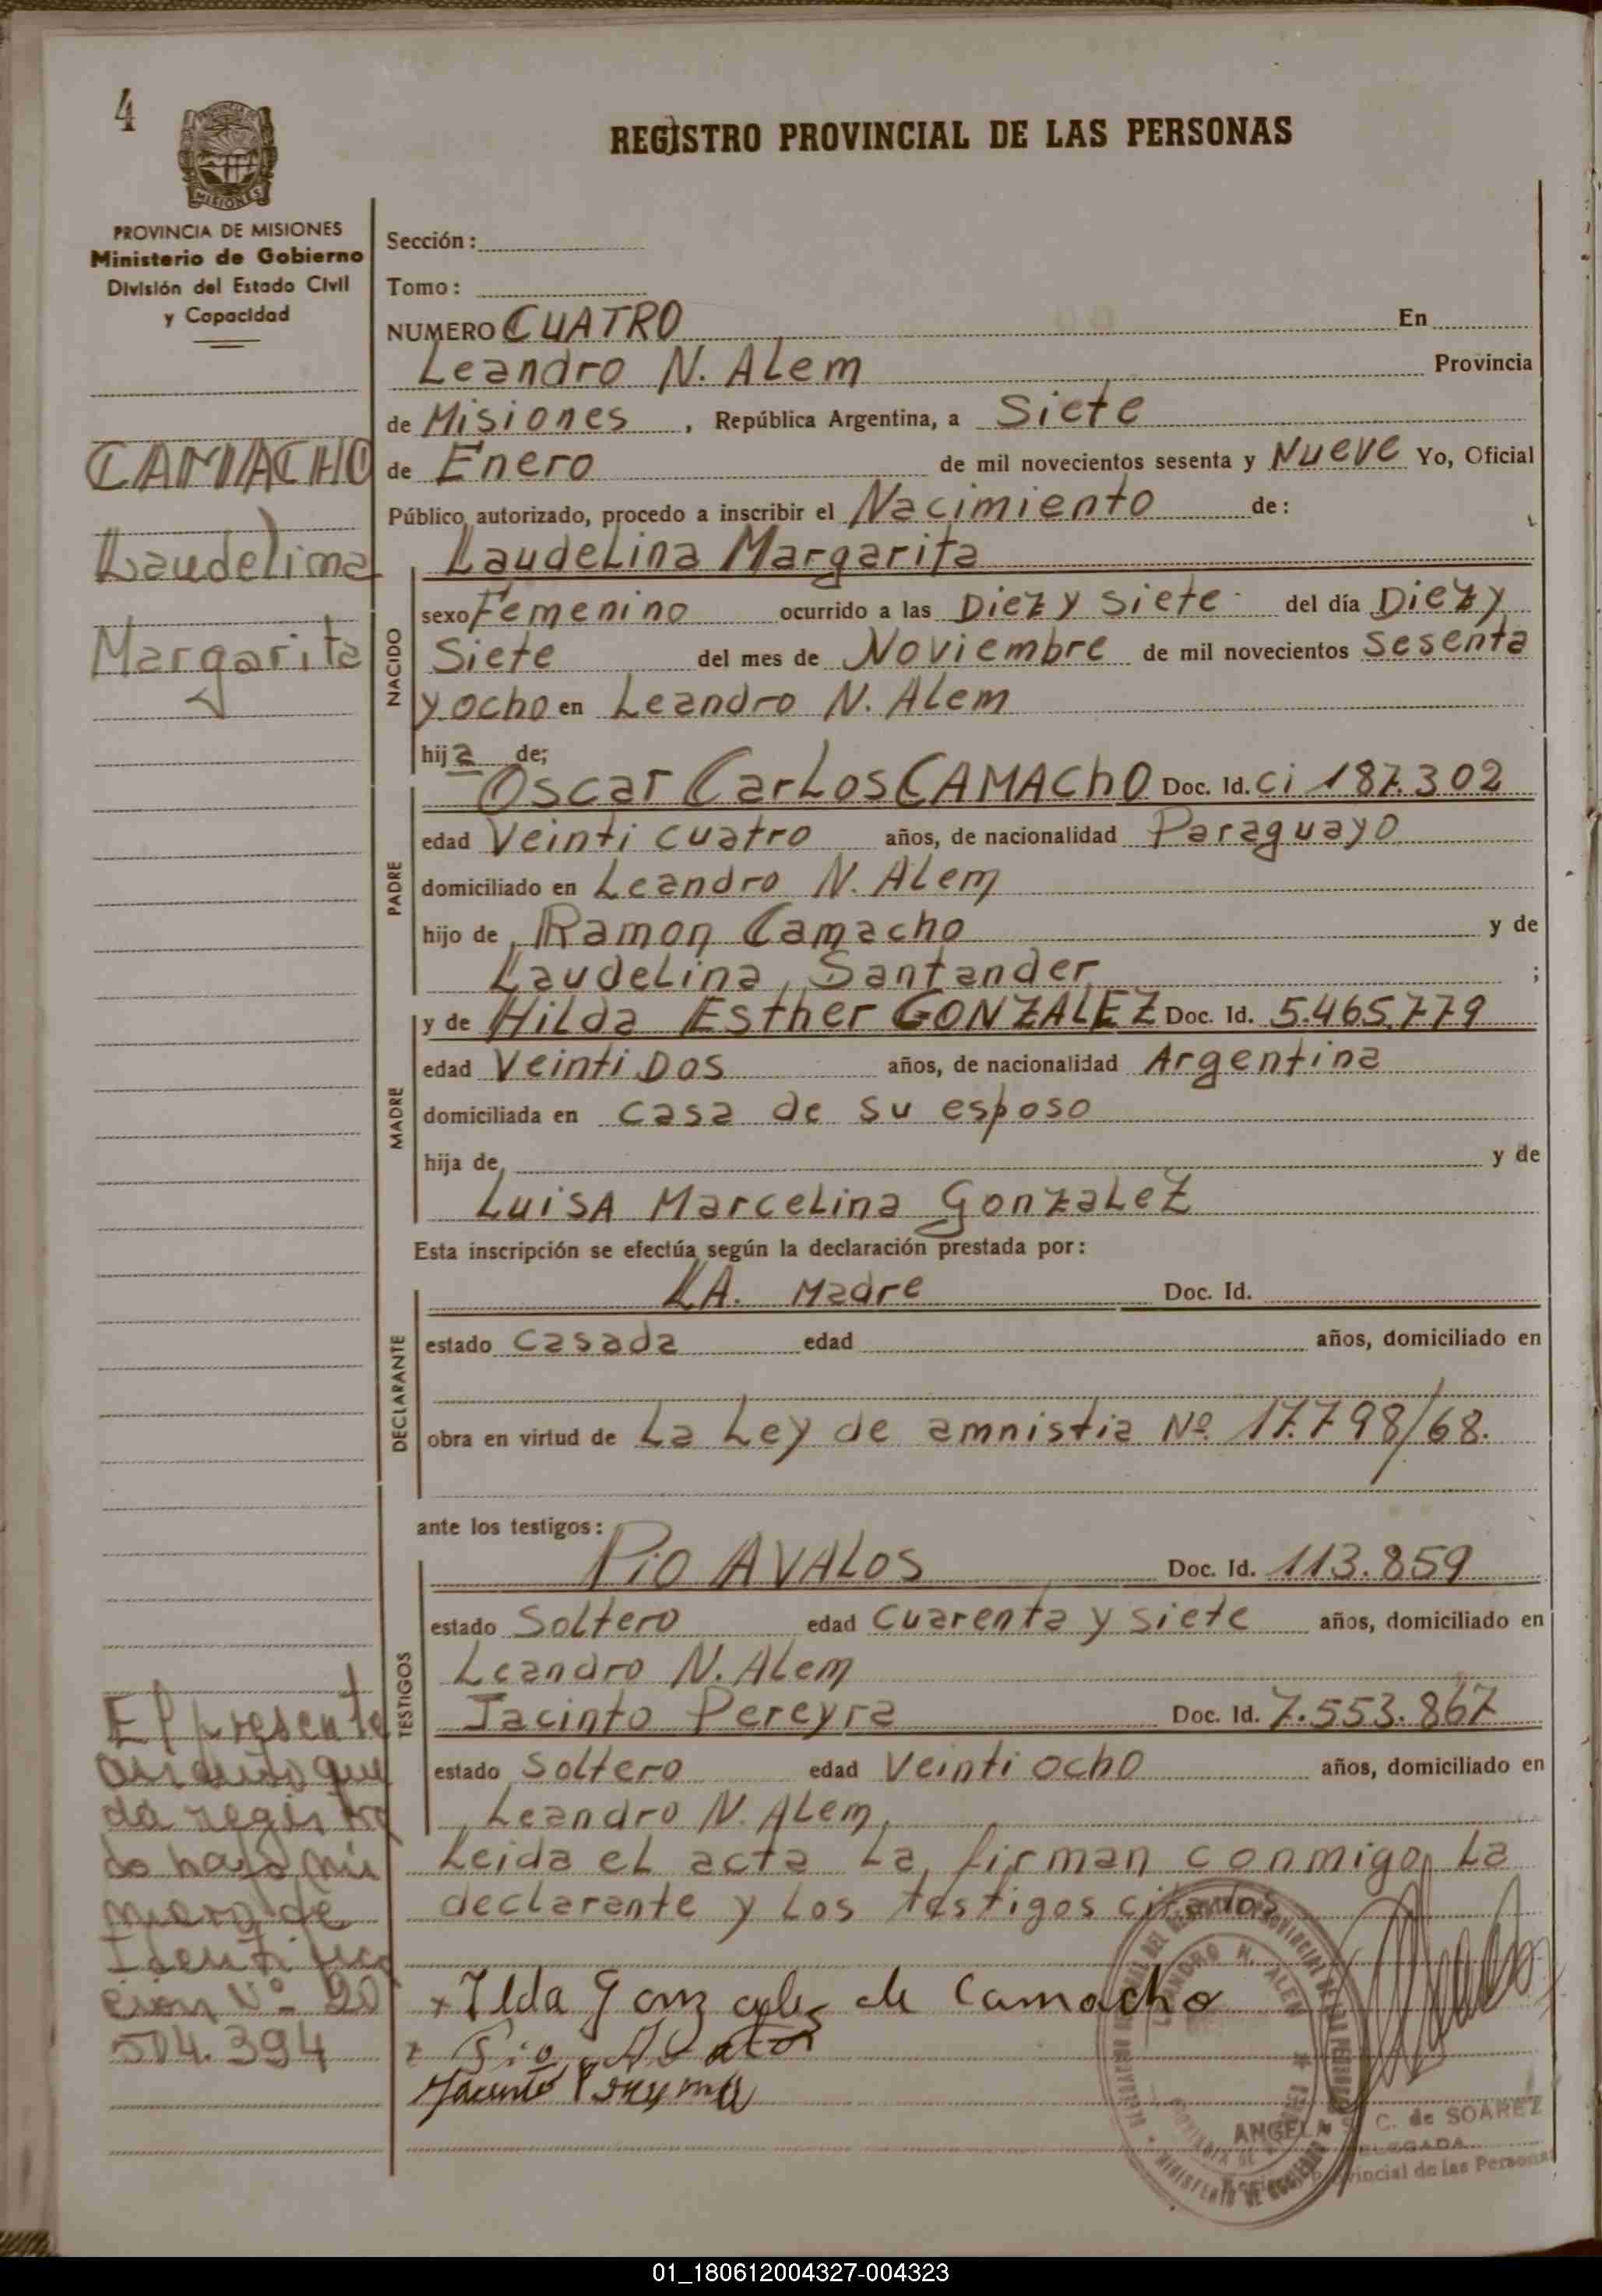 4
REGISTRO PROVINCIAL DE LAS PERSONAS
MISIONES
PROVINCIA DE MISIONES
Ministerio de Gobierno
División del Estado Civil
y Capacidad
CAMACHO
Laudelina
Margarita
Sección:
Tomo:
NUMERO CUATRO En
Leandro N. Alem Provincia
de Misiones, República Argentina, a Siete
de Enero de mil novecientos sesenta y Nueve Yo, Oficial
Público autorizado, procedo a inscribir el Nacimiento de:
Laudelina Margarita
NACIDO
sexo Femenino ocurrido a las Diez y siete del día Diez y
Siete del mes de Noviembre de mil novecientos Sesenta
y ocho en Leandro N. Alem
hija de;
PADRE
Oscar Carlos CAMACHO Doc. Id. Ci 187.302
edad Veinti cuatro años, de nacionalidad Paraguayo
domiciliado en Leandro N. Alem
hijo de Ramon Camacho y de
Laudelina Santander ;
MADRE
y de Hilda Esther GONZALEZ Doc. Id. 5.465.779
edad Veinti Dos años, de nacionalidad Argentina
domiciliada en casa de su esposo
hija de y de
Luisa Marcelina Gonzalez
Esta inscripción se efectúa según la declaración prestada por:
DECLARANTE
LA. Madre Doc. Id.
estado casada edad años, domiciliado en
obra en virtud de La Ley de amnistia Nº 17.798/68.
ante los testigos:
TESTIGOS
Pio AVALOS Doc. Id. 113.859
estado Soltero edad Cuarenta y siete años, domiciliado en
Leandro N. Alem
Jacinto Pereyra Doc. Id. 7.553.867
estado Soltero edad Veinti ocho años, domiciliado en
Leandro N. Alem
Leida el acta La firman conmigo La
declarante y Los testigos citados
El presente
que
da registra
do bajo nú
mero de
Identifica
cion Nº 20
504.394
Ilda Gonzalez de Camacho
Pio Avalos
Jacinto Pereyra
LEANDRO N. ALEM
MINISTERIO DE GOBIERNO
ANGELA C. de SOAREZ
DELEGADA
Provincial de las Personas
01_180612004327-004323